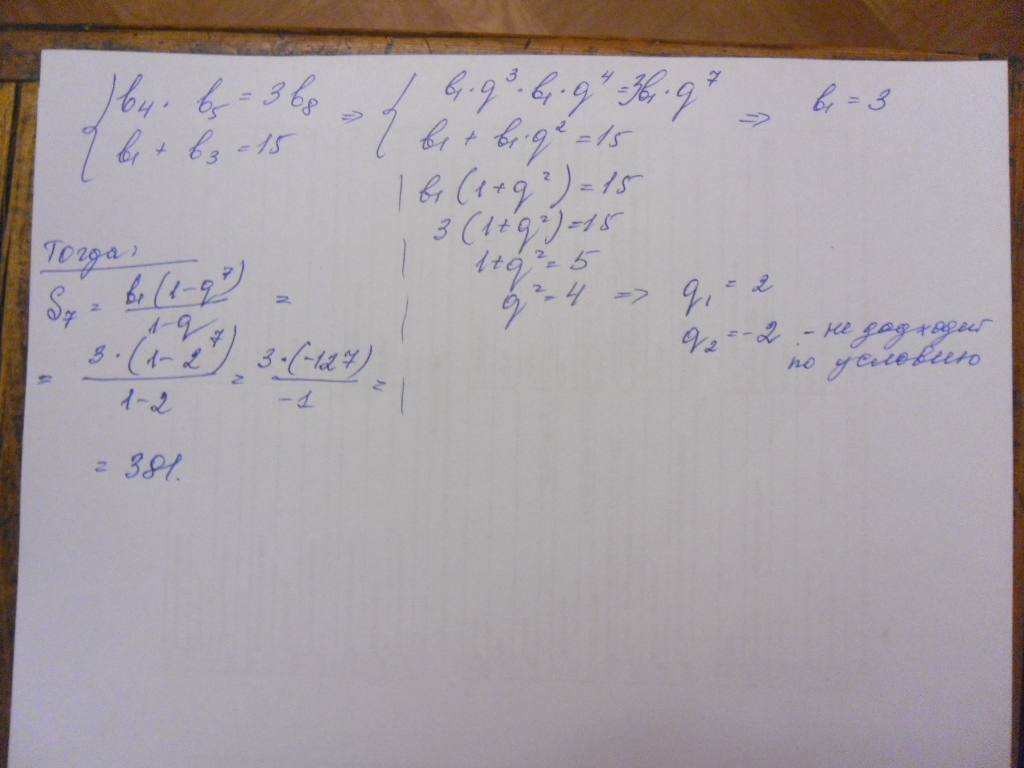 b₄ · b₅ = 3b₈ => b₁·q³·b₁·q⁴=3b₁·q⁷ => b₁ = 3
b₁ + b₃ = 15 b₁ + b₁·q² = 15
b₁(1+q²) = 15
3(1+q²)=15
1+q² = 5
q² = 4 => q₁ = 2
q₂ = -2 - не подходит
по условию
Тогда:
S₇ = b₁(1-q⁷)/1-q =
= 3·(1-2⁷)/1-2 = 3·(-127)/-1 =
= 381.